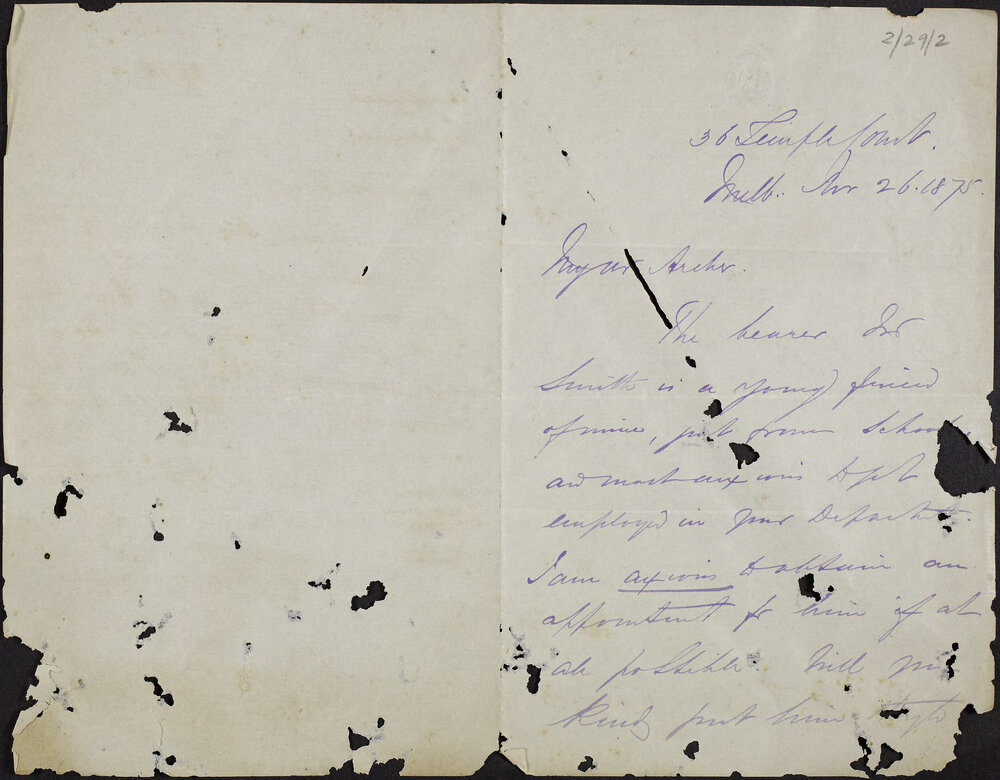 2/29/2
36 Temple Court.
Melb. Nov 26. 1875.
My dr Archer.
The bearer Mr
Smith is a young friend
of mine, just from school,
and most anxious to get
employed in your Departmt.
I am anxious to obtain an
appointment for him if at
all possible. Will you
kindly put him